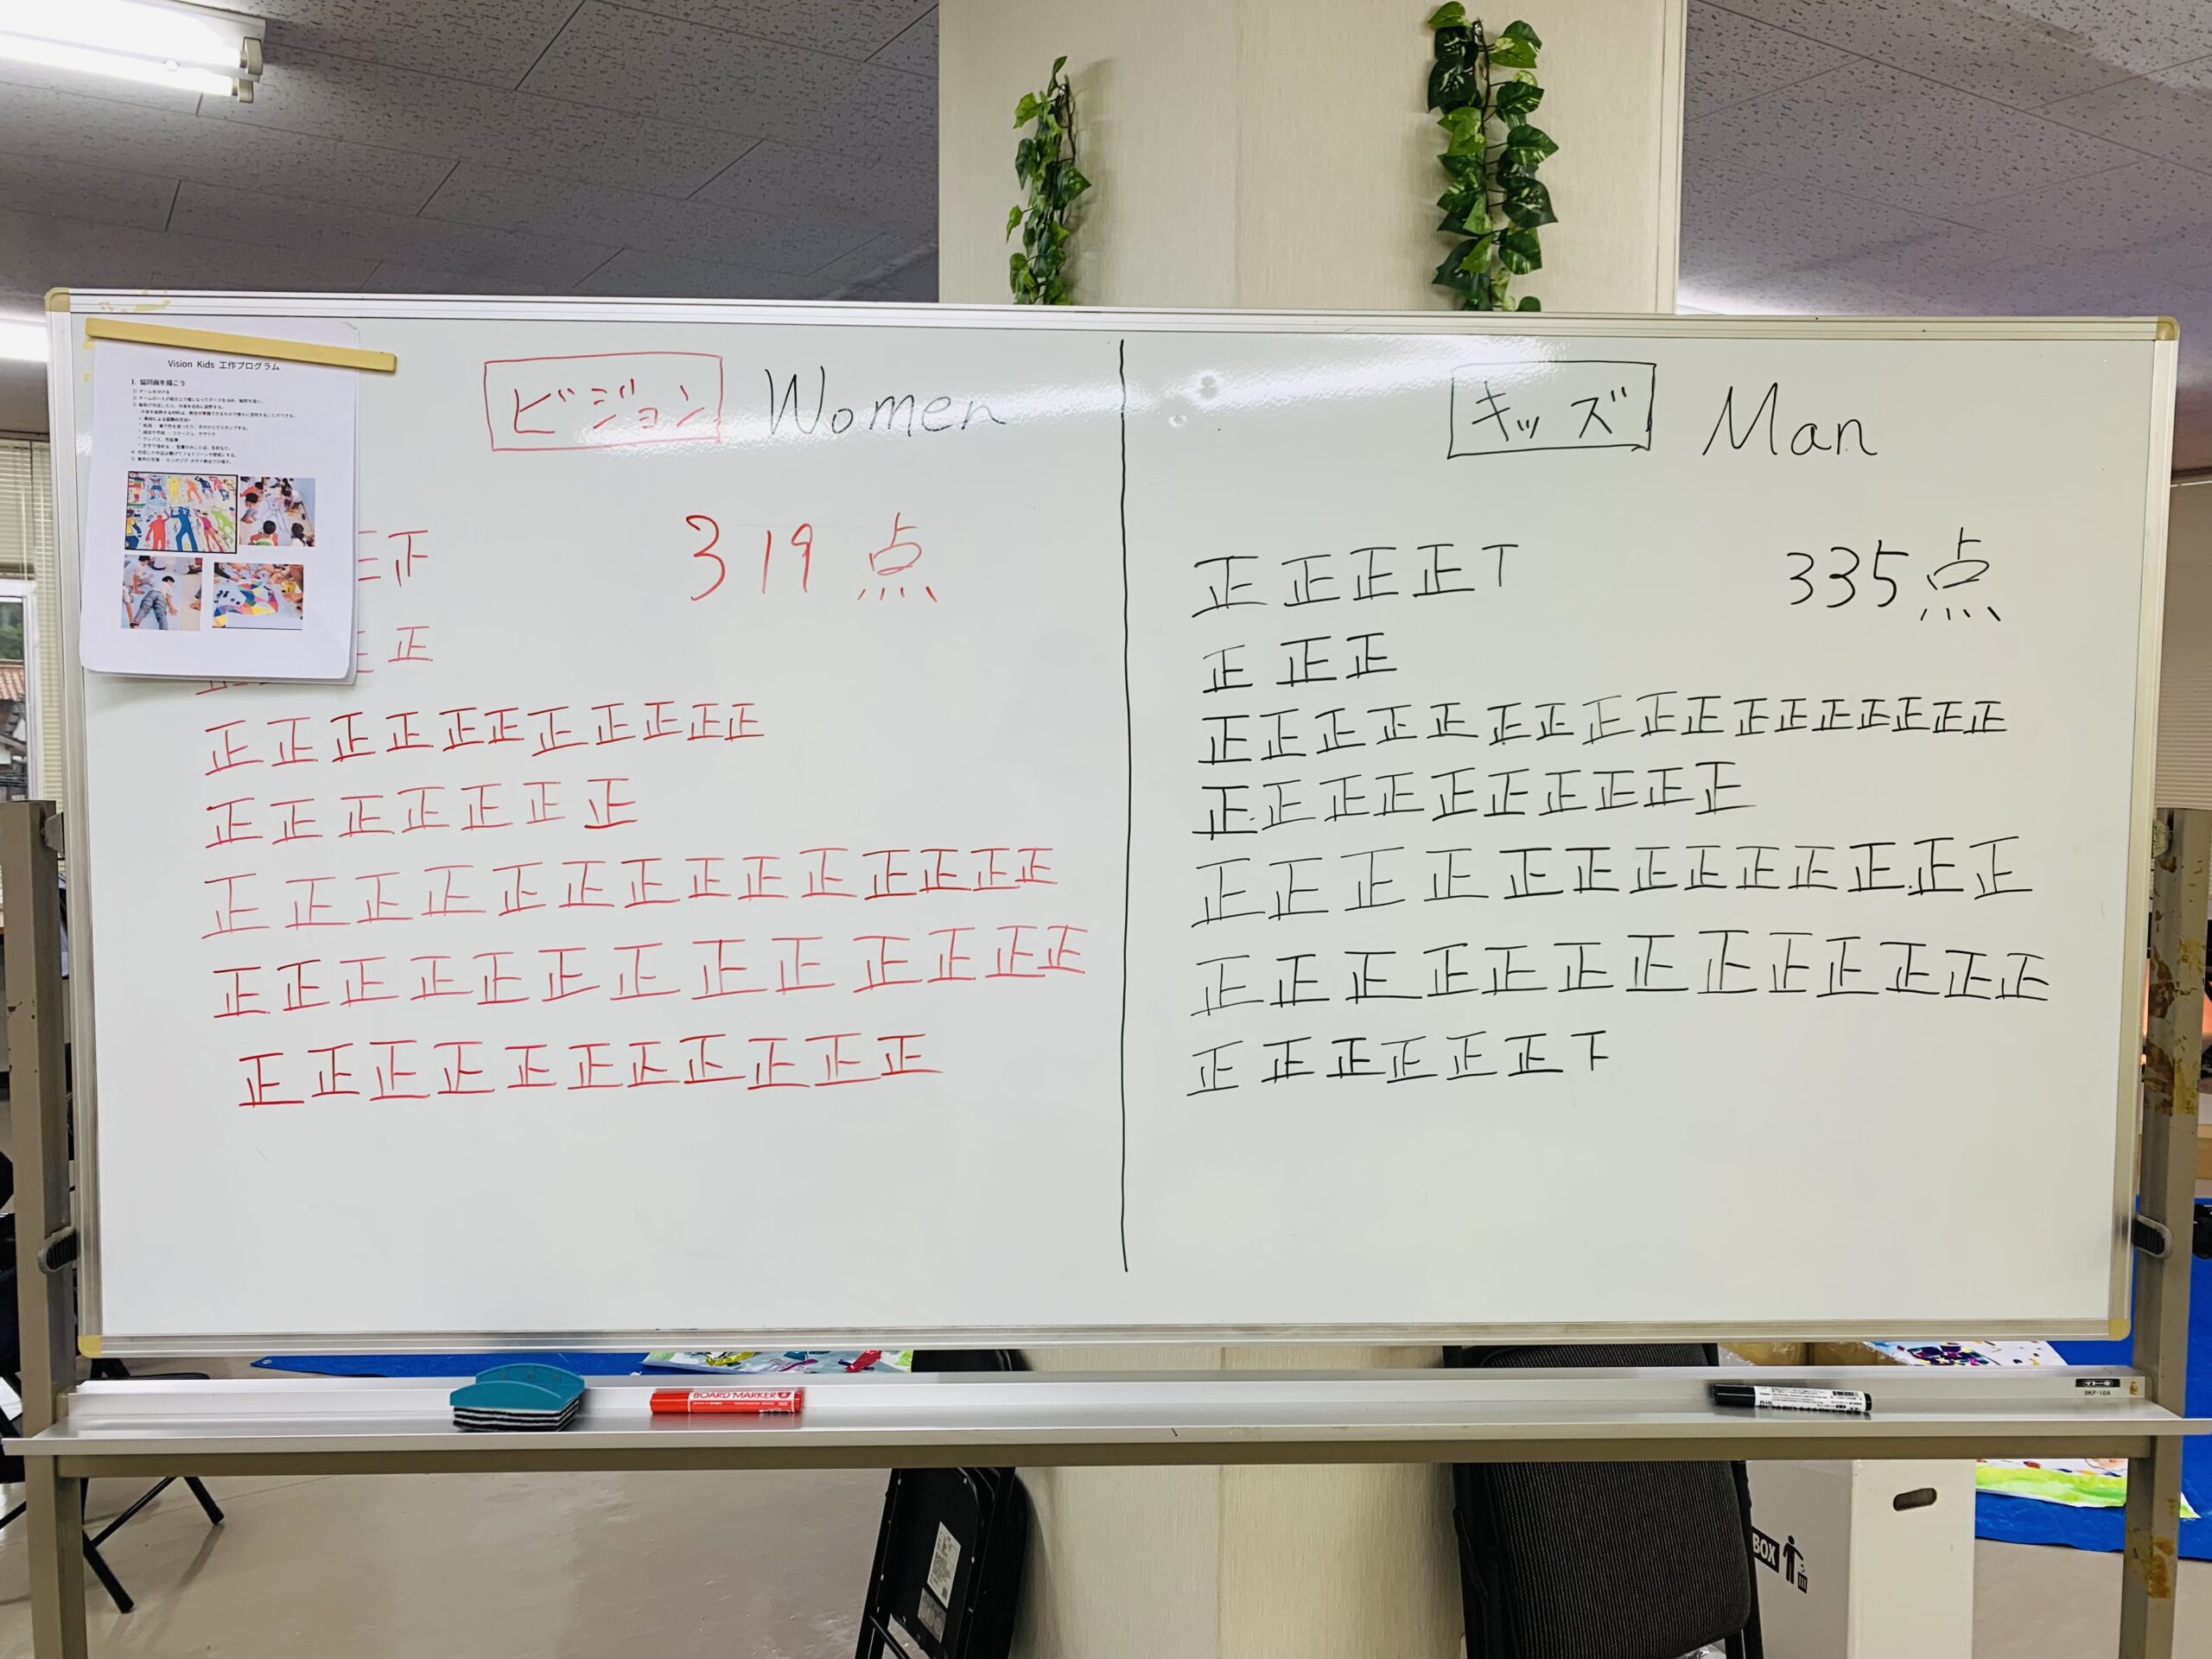 Vision Kids 工作プログラム
1. 協同画を描こう
ビジョン Women
319点
正
正
正正正正正正正正正正正
正正正正正正正
正正正正正正正正正正正正正正
正正正正正正正正正正正正正
正正正正正正正正正正正
キッズ Man
正正正正T 335点
正正正
正正正正正正正正正正正正正正正正正
正正正正正正正正正正
正正正正正正正正正正正正正
正正正正正正正正正正正正正
正正正正正正下
BOARD MARKER
PLUS
イトーキ
BKP-16A
BOX